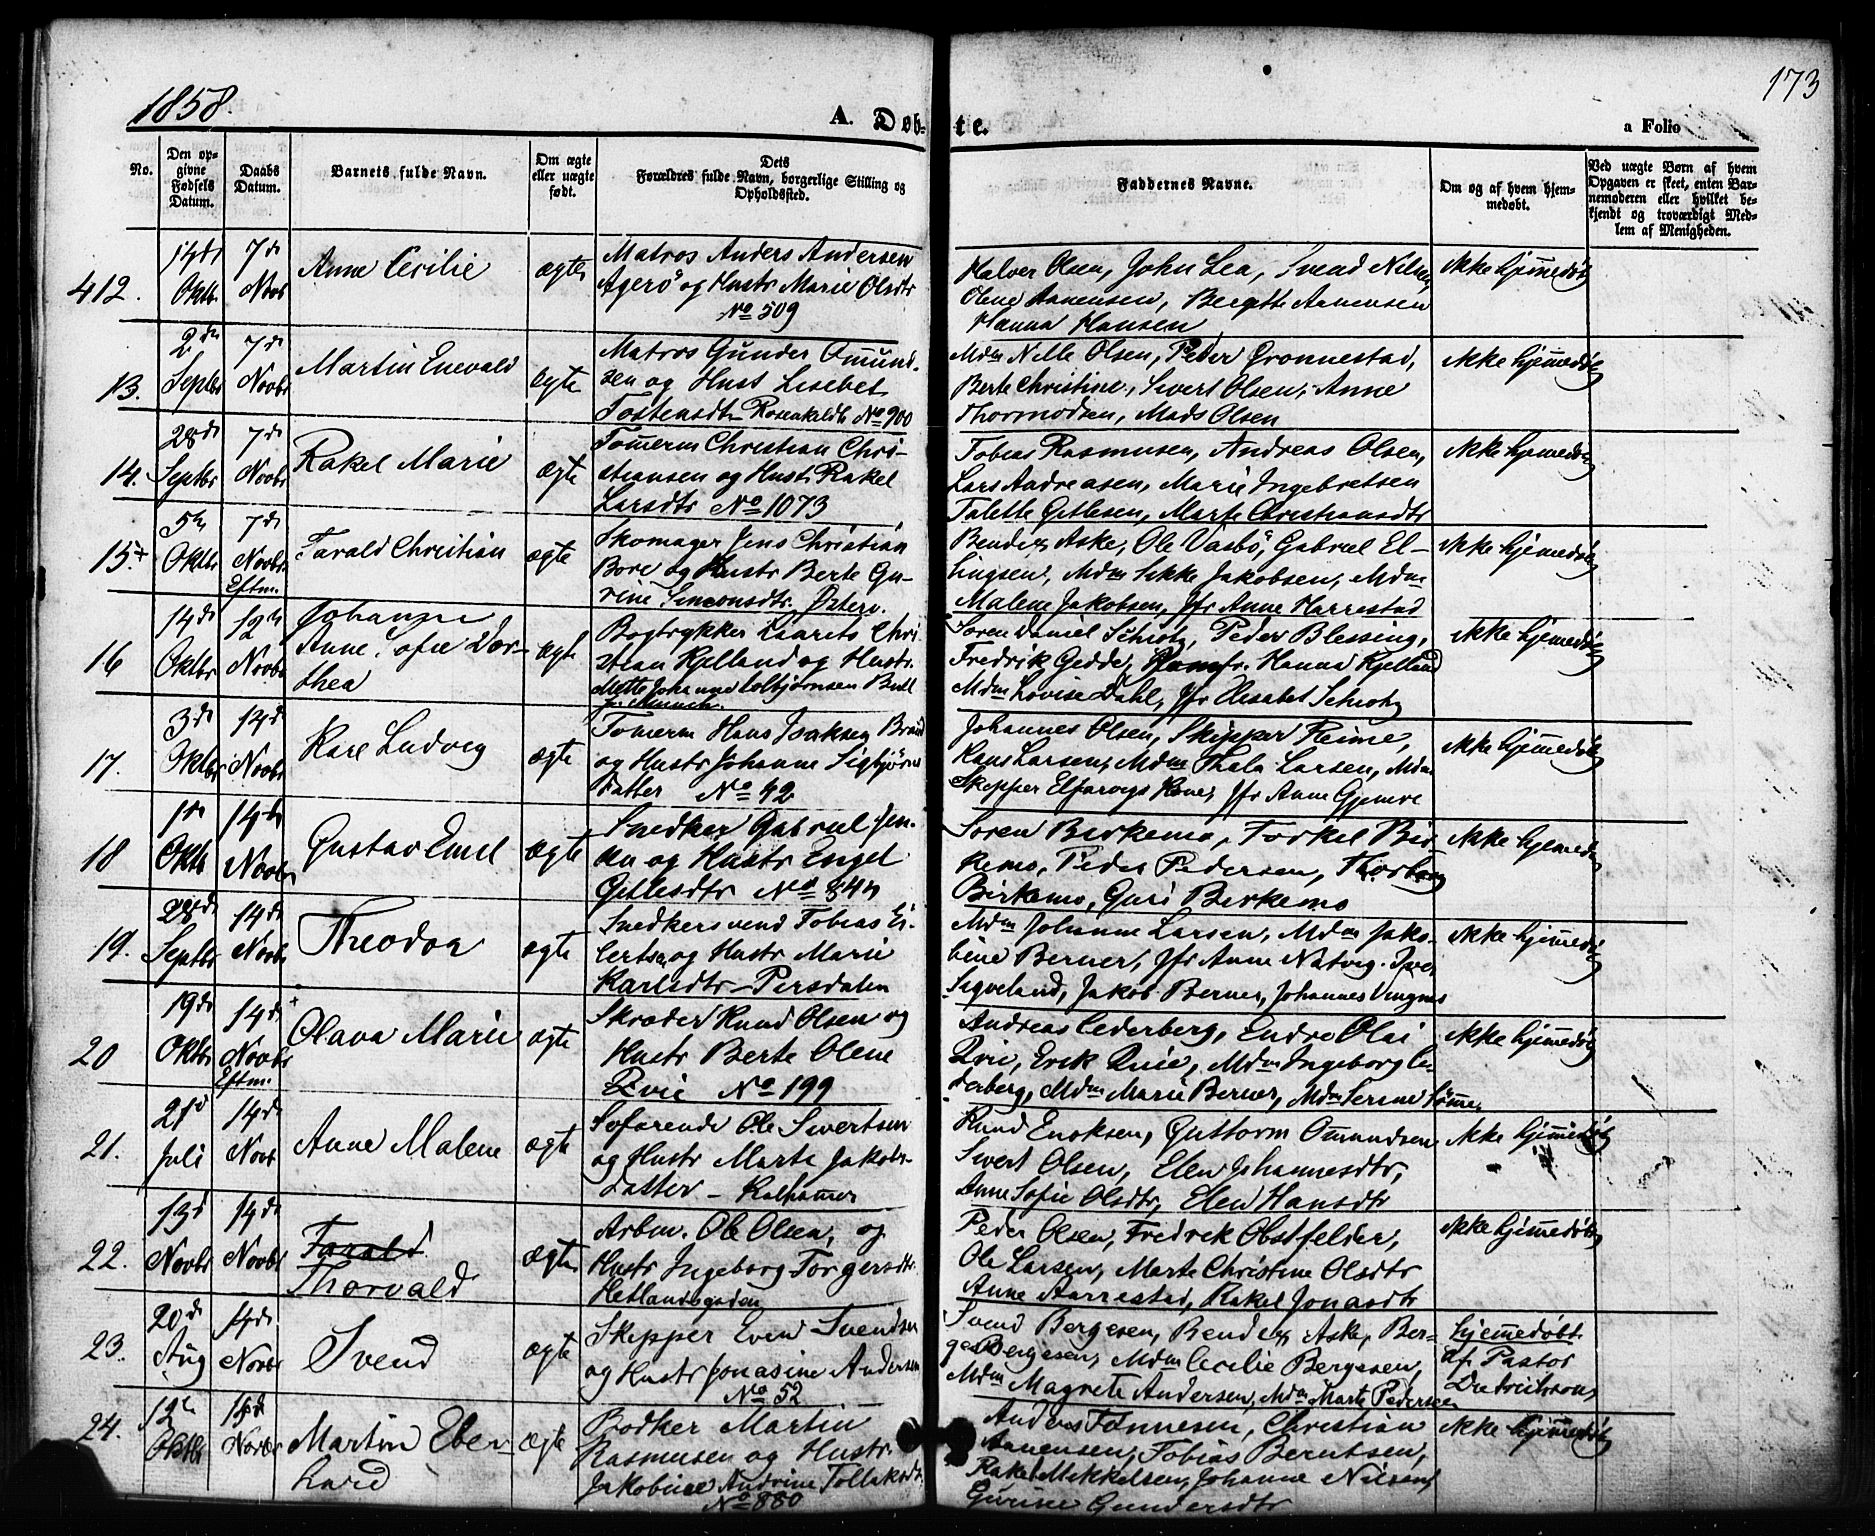 1858.
173
A. Døb-
te.
a Folio
No.
Den op-
givne
Fødsels
Datum.
Daabs
Datum.
Barnets fulde Navn.
Om ægte
eller uægte
født.
Dets
Forældres fulde Navn, borgerlige Stilling og
Opholdssted.
Faddernes Navne.
Om og af hvem hjem-
medøbt.
Ved uægte Børn af hvem
Opgaven er skeet, enten Bar-
nemoderen eller hvilket be-
kjendt og troværdigt Med-
lem af Menigheden.
412.
14de
Oktbr
7de
Novb
Anne Cecilie
ægte
Matros Anders Andersen
Agerö og Hustr Marie Olsdtr
No 509
Halver Olsen, John Lea, Svend Nilsen
Olene Aanensen, Bergitte Aanensen
Hanna Hansen
Ikke hjemmedøbt
13.
2den
Septbr
7de
Novbr
Martin Enevald
ægte
Matros Gunder Omund-
sen og Hust Lisebet
Tostensdtr Rosenkildb No 900
Mdm Nille Olsen, Peder Gronnestad,
Berte Christine, Sivert Olsen, Anne
Thormodsen, Mads Olsen
Ikke hjemmedøbt
14.
28de
Septbr
7de
Novbr
Rakel Marie
ægte
Tomerm Christian Chri-
stiansen og Hust Rakel
Larsdtr No 1073
Tobias Rasmusen, Andreas Olsen,
Lars Andreasen, Marie Ingebretsen
Talette Gitlesen, Marte Christiansdtr
Ikke hjemmedøbt
15.+
5te
Oktbr
7de
Novbr
Eftm.
Tarald Christian
ægte
Skomager Jens Christian
Bore og Hustr Berte Gu-
rine Simonsdtr. Østerv.
Bendix Aske, Ole Vasbö, Gabriel El-
lingsen, Mdm Sikke Jakobsen, Mdm
Malene Jakobsen, Jfr Anne Harrestad
Ikke hjemmedøbt
16
14de
Oktbr
12te
Novbr
Johanne
Anne Sofie Dor-
thea
ægte
Bogtrykker Laurits Chri
stian Kjelland og Hustr.
Mette Johanne Colbjørnsen Bull
f. Munch.
Søren Daniel Schiotz, Peder Blessing,
Fredrik Gedde, Jomfr. Hanna Kjelland
Mdm Lovise Dahl, Jfr Elisabet Schiotz
Ikke hjemmedøbt
17.
3de
Oktbr
14de
Novbr
Kare Ludvig
ægte
Tomerm Hans Isaksen Brand
og Hustr Johanne Sigbjörns
datter No 42
Johannes Olsen, Skipper Reime,
Hans Larsen, Mdm Thala Larsen, Mdm
Skipper Elfarvigs Kone, Jfr Anne Gjemre
Ikke hjemmedøbt
18
1ste
Oktb
14de
Novbr
Gustav Emil
ægte
Snedker Gabriel Jen-
sen og Hustr Engel
Gitlesdtr No 844
Soren Birkemo, Torkel Bir-
kemo, Peder Pedersen, Thorborg
Birkemo, Guri Birkemo
Ikke hjemmedøbt
19.
28de
Septbr
14de
Novbr
Theodor
ægte
Snedkersvend Tobias Ei-
lertsen og Hustr Marie
Karlsdtr - Persdalen
Mdm Johanne Larsen, Mdm Jako-
bine Berner, Jfr Anne Natvig. Iver
Sigveland, Jakob Berner, Johannes Vingnes
Ikke hjemmedøbt
20
19de
Oktbr
14de
Novbr
Eftm.
Olava Marie
ægte
Skræder Knud Olsen og
Hustr Berte Olene
Qvie No 199
Andreas Cederberg, Endre Olai
Qvie, Erik Qvie, Mdm Ingeborg Ce-
derberg, Mdm Marie Berner, Mdm Serine Sömme
Ikke hjemmedøbt
21.
21de
Juli
14de
Novbr
Anne Malene
ægte
Sofarende Ole Sivertsen
og Hustr Marte Jakobs-
datter - Kalhammer
Knud Enoksen, Guttorm Omundsen
Sivert Olsen, Elen Johannesdtr,
Anne Sofie Olsdtr, Elen Hansdtr
Ikke hjemmedøbt
22.
13de
Novbr
14de
Novbr
Tarald
Thorvald
ægte
Arbm. Ole Olsen, og
Hustr Ingeborg Torgersdtr
Hetlandsgaden
Peder Olsen, Fredrik Obstfelder,
Ole Larsen, Marte Christine Olsdtr
Anne Aarrestad, Rakel Jonasdtr
Ikke hjemmedøbt
23.
20de
Aug
14de
Novbr
Svend
ægte
Skipper Even Svendsen
og Hustr Jonasine Andersen
No 52
Svend Bergesen, Bendix Aske, Ber-
ge Bergesen, Mdm Cecilie Bergesen,
Mdm Magrete Andersen, Mdm Marte Pedersen
hjemmedøbt
af Pastor
Dietrichson
24.
12te
Oktbr
18de
Novbr
Martin Eber-
hard
ægte
Bodker Martin
Rasmusen og Hustr.
Jakobine Andrine Tollaksdtr
No 880
Anders Tönnesen, Christian
Aanensen, Tobias Berntsen,
Rakel Mikkelsen, Johanne Nilsen,
Gurine Gundersdtr
Ikke hjemmedøbt